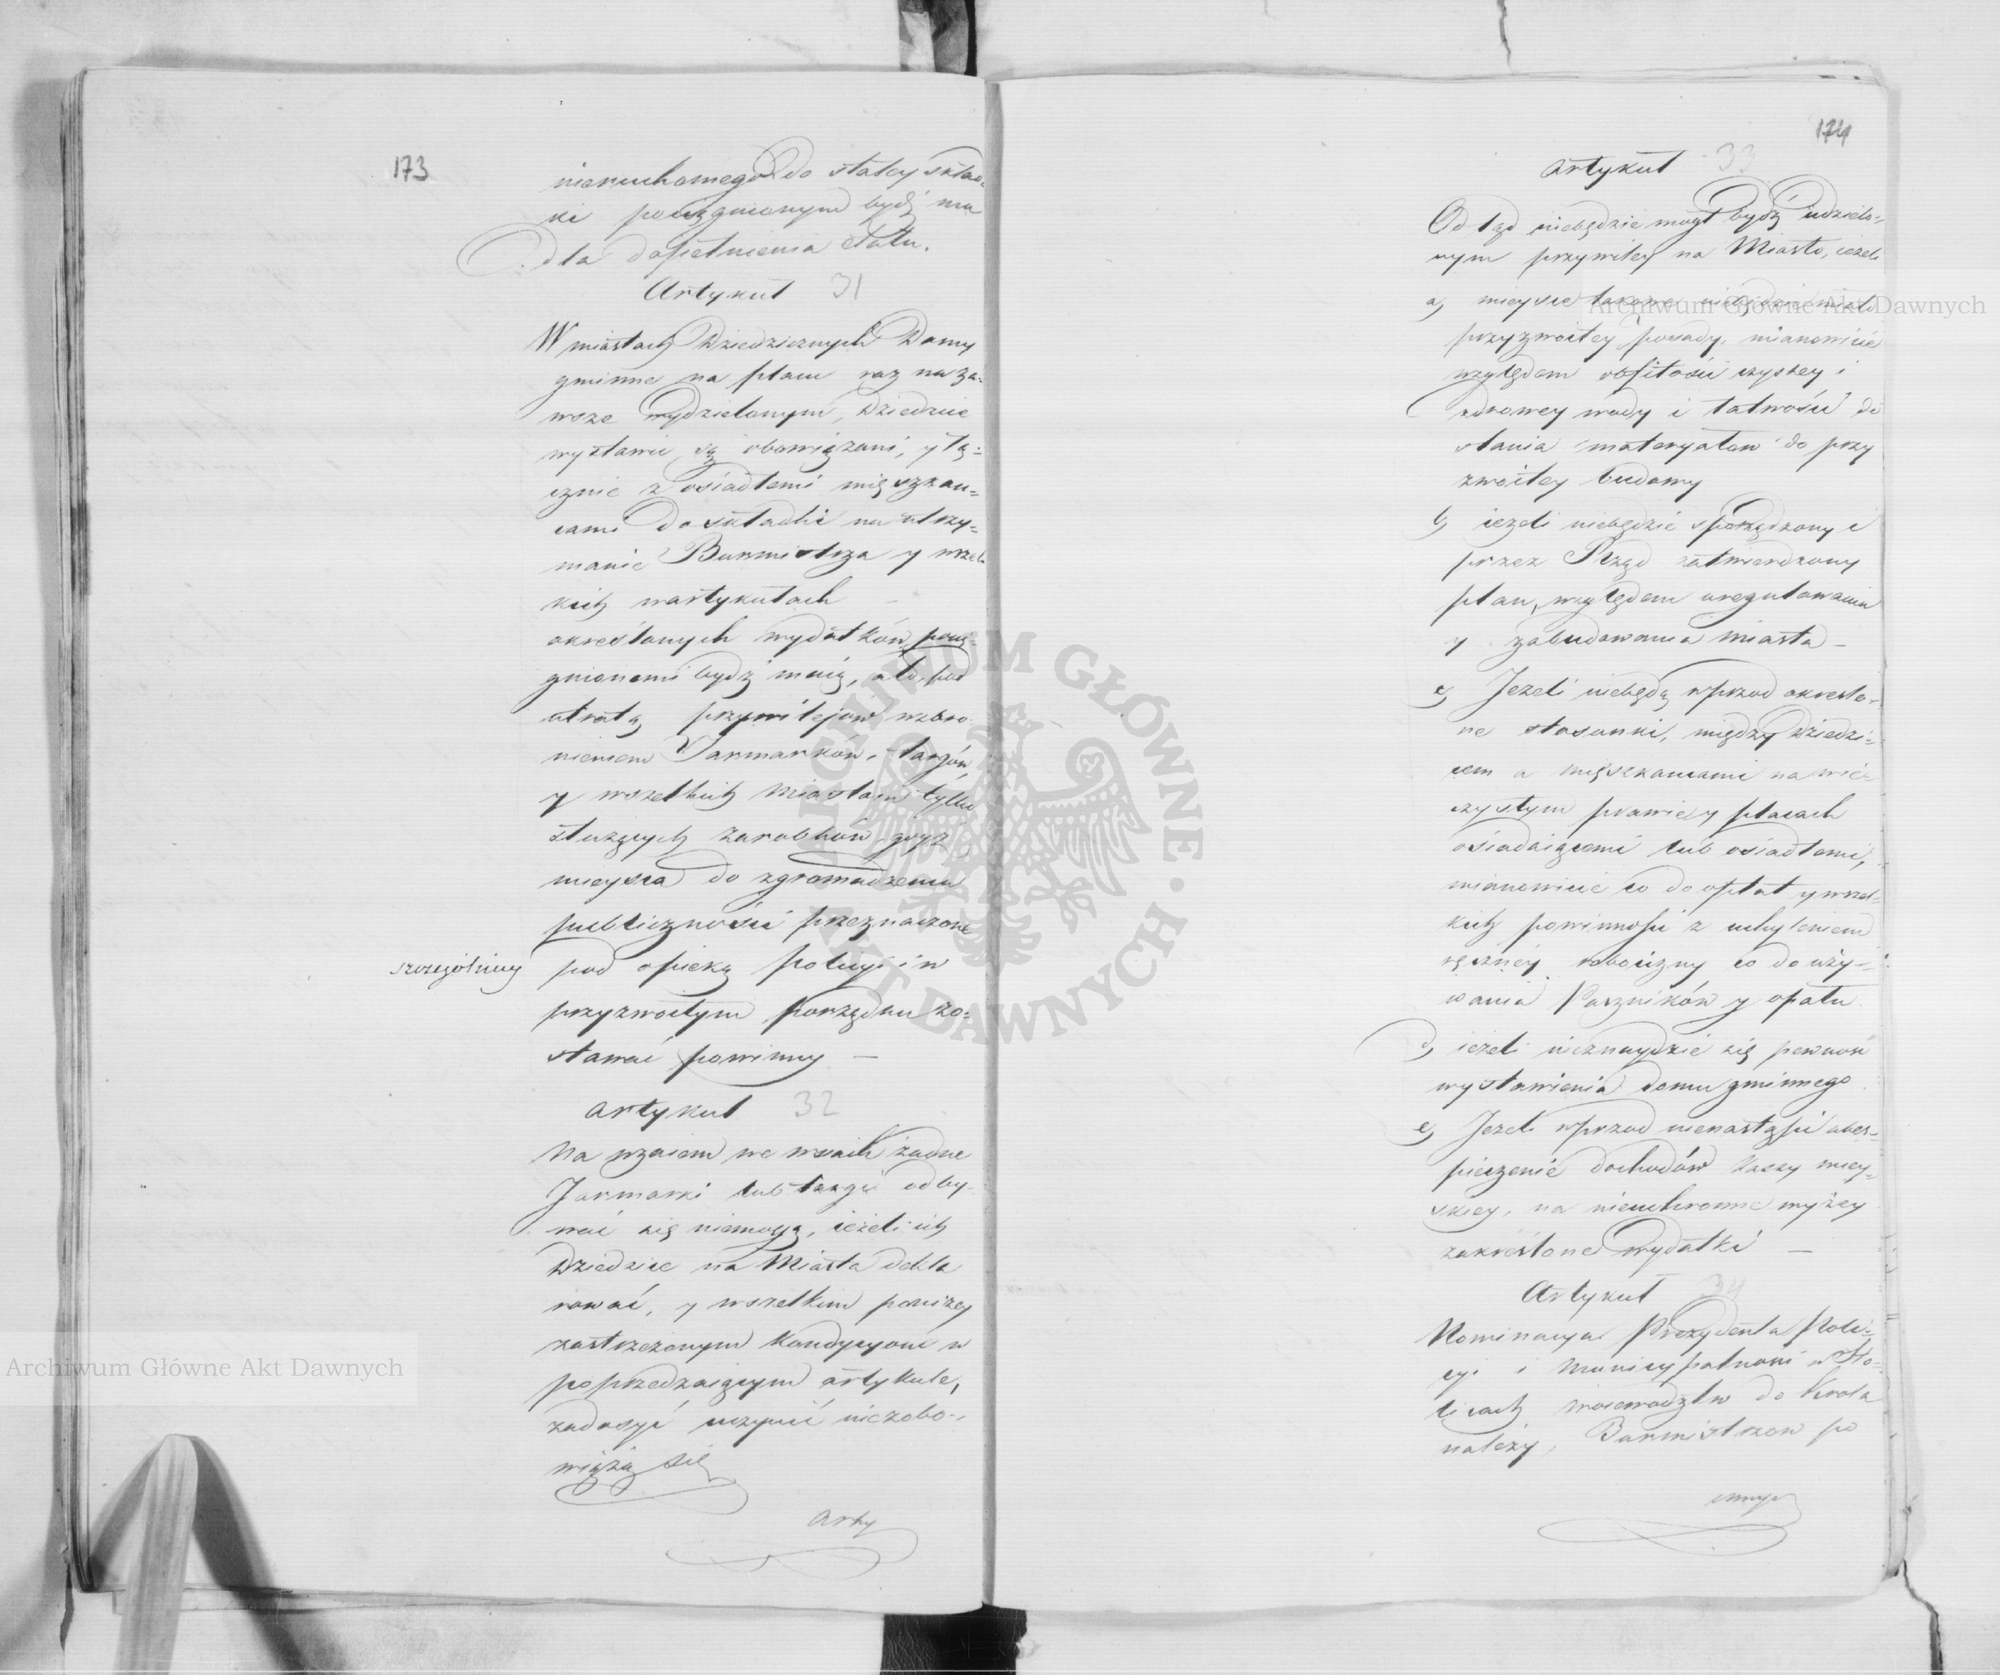 173
nieruchomego do stałey skład-
ki pociągnionym bydź ma
dla dopełnienia etatu.
Artykuł 31
W miastach Dziedzicznych Domy
gminne na placu raz na za-
wsze wydzielonym, Dziedzice
wystawić są obowiązani, y łą-
cznie z osiadłemi mięszkań-
cami do składki na utrzy-
manie Burmistrza y wszel-
kich w artykułach —
określonych wydatków, pocią-
gnionemi bydź maią, a to, pod
utratą przywilejów, wzbro-
nieniem Jarmarków, targów,
y wszelkich Miastom tylko
służących zarobków, gdyż
mieysca do zgromadzenia
publiczności przeznaczone
szczególniey pod opieką policyi i w
przyzwoitym porządku zo-
stawać powinny —
Artykuł 32
Na wzaiem we wsiach żadne
Jarmarki lub targi odby-
wać się niemogą, ieżeli ich
Dziedzice na Miasta dekla
rować, y wszelkim poniżey
zastrzeżonym Kondycyom w
poprzedzaiącym artykule,
zadosyć uczynić niezobo-
wiążą się
Arty
174
Artykuł 33
Od tąd niebędzie mógł bydź udzielo-
nym przywiley na Miasto, ieżeli
a, mieysce takowe niebędzie miało
przyzwoitey posady, mianowicie
względem obfitości czystey i
zdrowey wody i łatwości do
stania materyałow do przy
zwoitey budowy
b, ieżeli niebędzie sporządzony i
przez Rząd zatwierdzony
plan, względem uregulowania
y zabudowania Miasta —
c, Jeżeli niebędą wprzod okreslo-
ne stosunki, między Dziedzi-
cem a mięszkancami na wie-
czystym prawie y placach
osiadaiącemi lub osiadłemi,
mianowicie co do opłat y wszel-
kich powinności z uchyleniem
ręczney robocizny co do uży-
wania Pasznikow y opału
d, ieżeli nieznaydzie się pewność
wystawienia domu gminnego
e, Jeżeli wprzod nienastąpi ubes-
pieczenie dochodów kassy miey-
skiey, na nieuchronne wyżey
zakreślone wydatki —
Artykuł 34
Nominacya Prezydenta Poli-
cyi i Municypalnosci w Sto-
licach woiewodztw do Krola
należy, Burmistrzow po
Archiwum Główne Akt Dawnych
Archiwum Główne Akt Dawnych
ARCHIWUM GŁÓWNE · AKT DAWNYCH ·